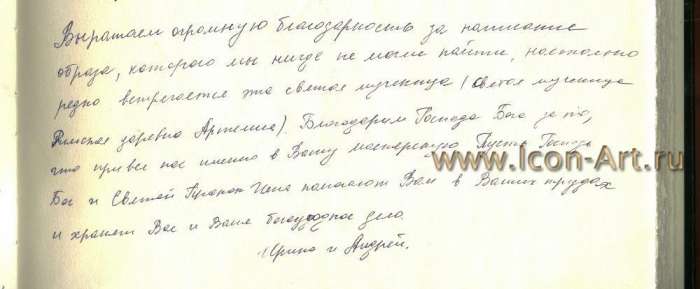 Выражаем огромную благодарность за написание
образа, которого мы нигде не могли найти, настолько
редко встречается эта святая мученица (святая мученица
Римская царевна Артемия). Благодарим Господа Бога за то,
что привел нас именно в Вашу мастерскую. Пусть Господь
www.Icon-Art.ru
Бог и Святой помогают Вам в Ваших трудах
и хранят Вас и Ваше богоугодное дело.
Ирина и Андрей.